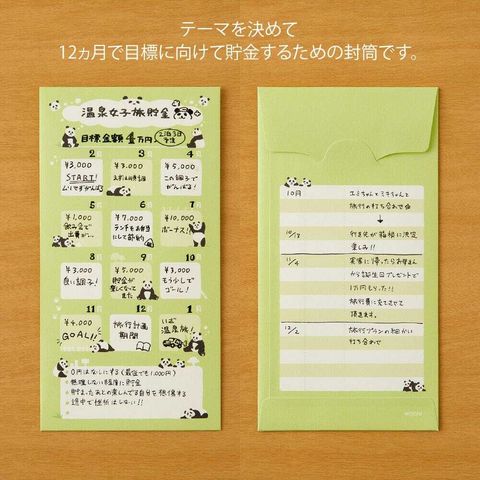 テーマを決めて
12ヵ月で目標に向けて貯金するための封筒です。
温泉女子旅貯金
目標金額4万円
2泊3日予定
2月
¥3,000
START!
ムリせずがんばる
3月
¥3,000
まずは順調
4月
¥5,000
この調子で
がんばる!
5月
¥1,000
飲み会で
出費が…
6月
¥7,000
ランチをお弁当
にして節約
7月
¥10,000
ボーナス!
8月
¥3,000
良い調子!
9月
¥5,000
貯金が
楽しくなって
きた
10月
¥3,000
もう少しで
ゴール!
11月
¥4,000
GOAL!!
12月
旅行計画
期間
1月
いざ
温泉旅!
0円はなしにする(最低でも1,000円)
無理しない程度に貯金
貯まったあとの楽しんでる自分を想像する
途中で挫折はしない!!
10月
エミちゃんとミキちゃんと
旅行の打ち合わせ
↓
10/12
行き先が箱根に決定
楽しみ!!
11/4
実家に帰ったらお母さん
から誕生日プレゼントで
1万円もらった!!
旅行費に充てさせて
頂きます。
12/2
旅行プランの細かい
打ち合わせ
MIDORI